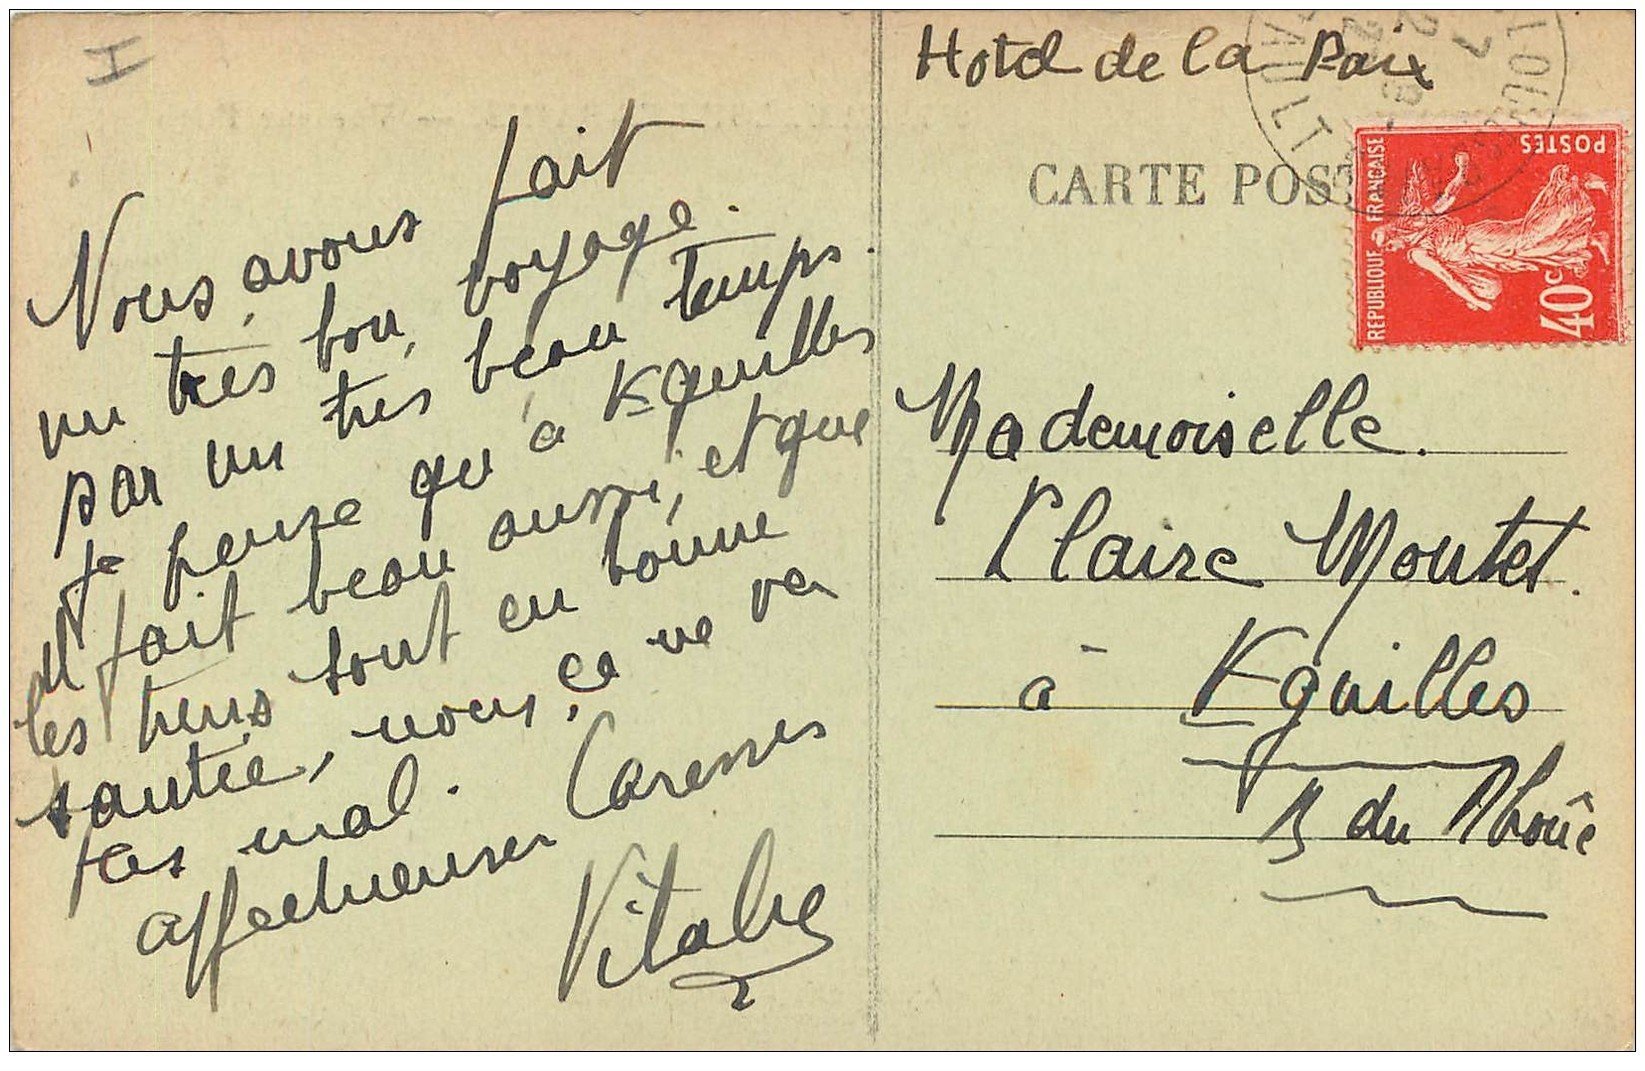 Nous avons fait
un très bon voyage.
par un très beau temps.
je pense qu'à Eguilles
il fait beau aussi, et que
les tiens sont en bonne
santée, nous, ça ne va
pas mal. Caresses
affectueuses
Vitalie
Hotel de la Paix
CARTE POST
REPUBLIQUE FRANÇAISE
POSTES
40c
Mademoiselle.
Claire Moutet.
à Eguilles
B du Rhône